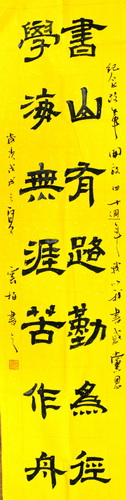 紀念改革開放四十週年
書山有路勤為徑
學海無涯苦作舟
歲次戊戌之夏